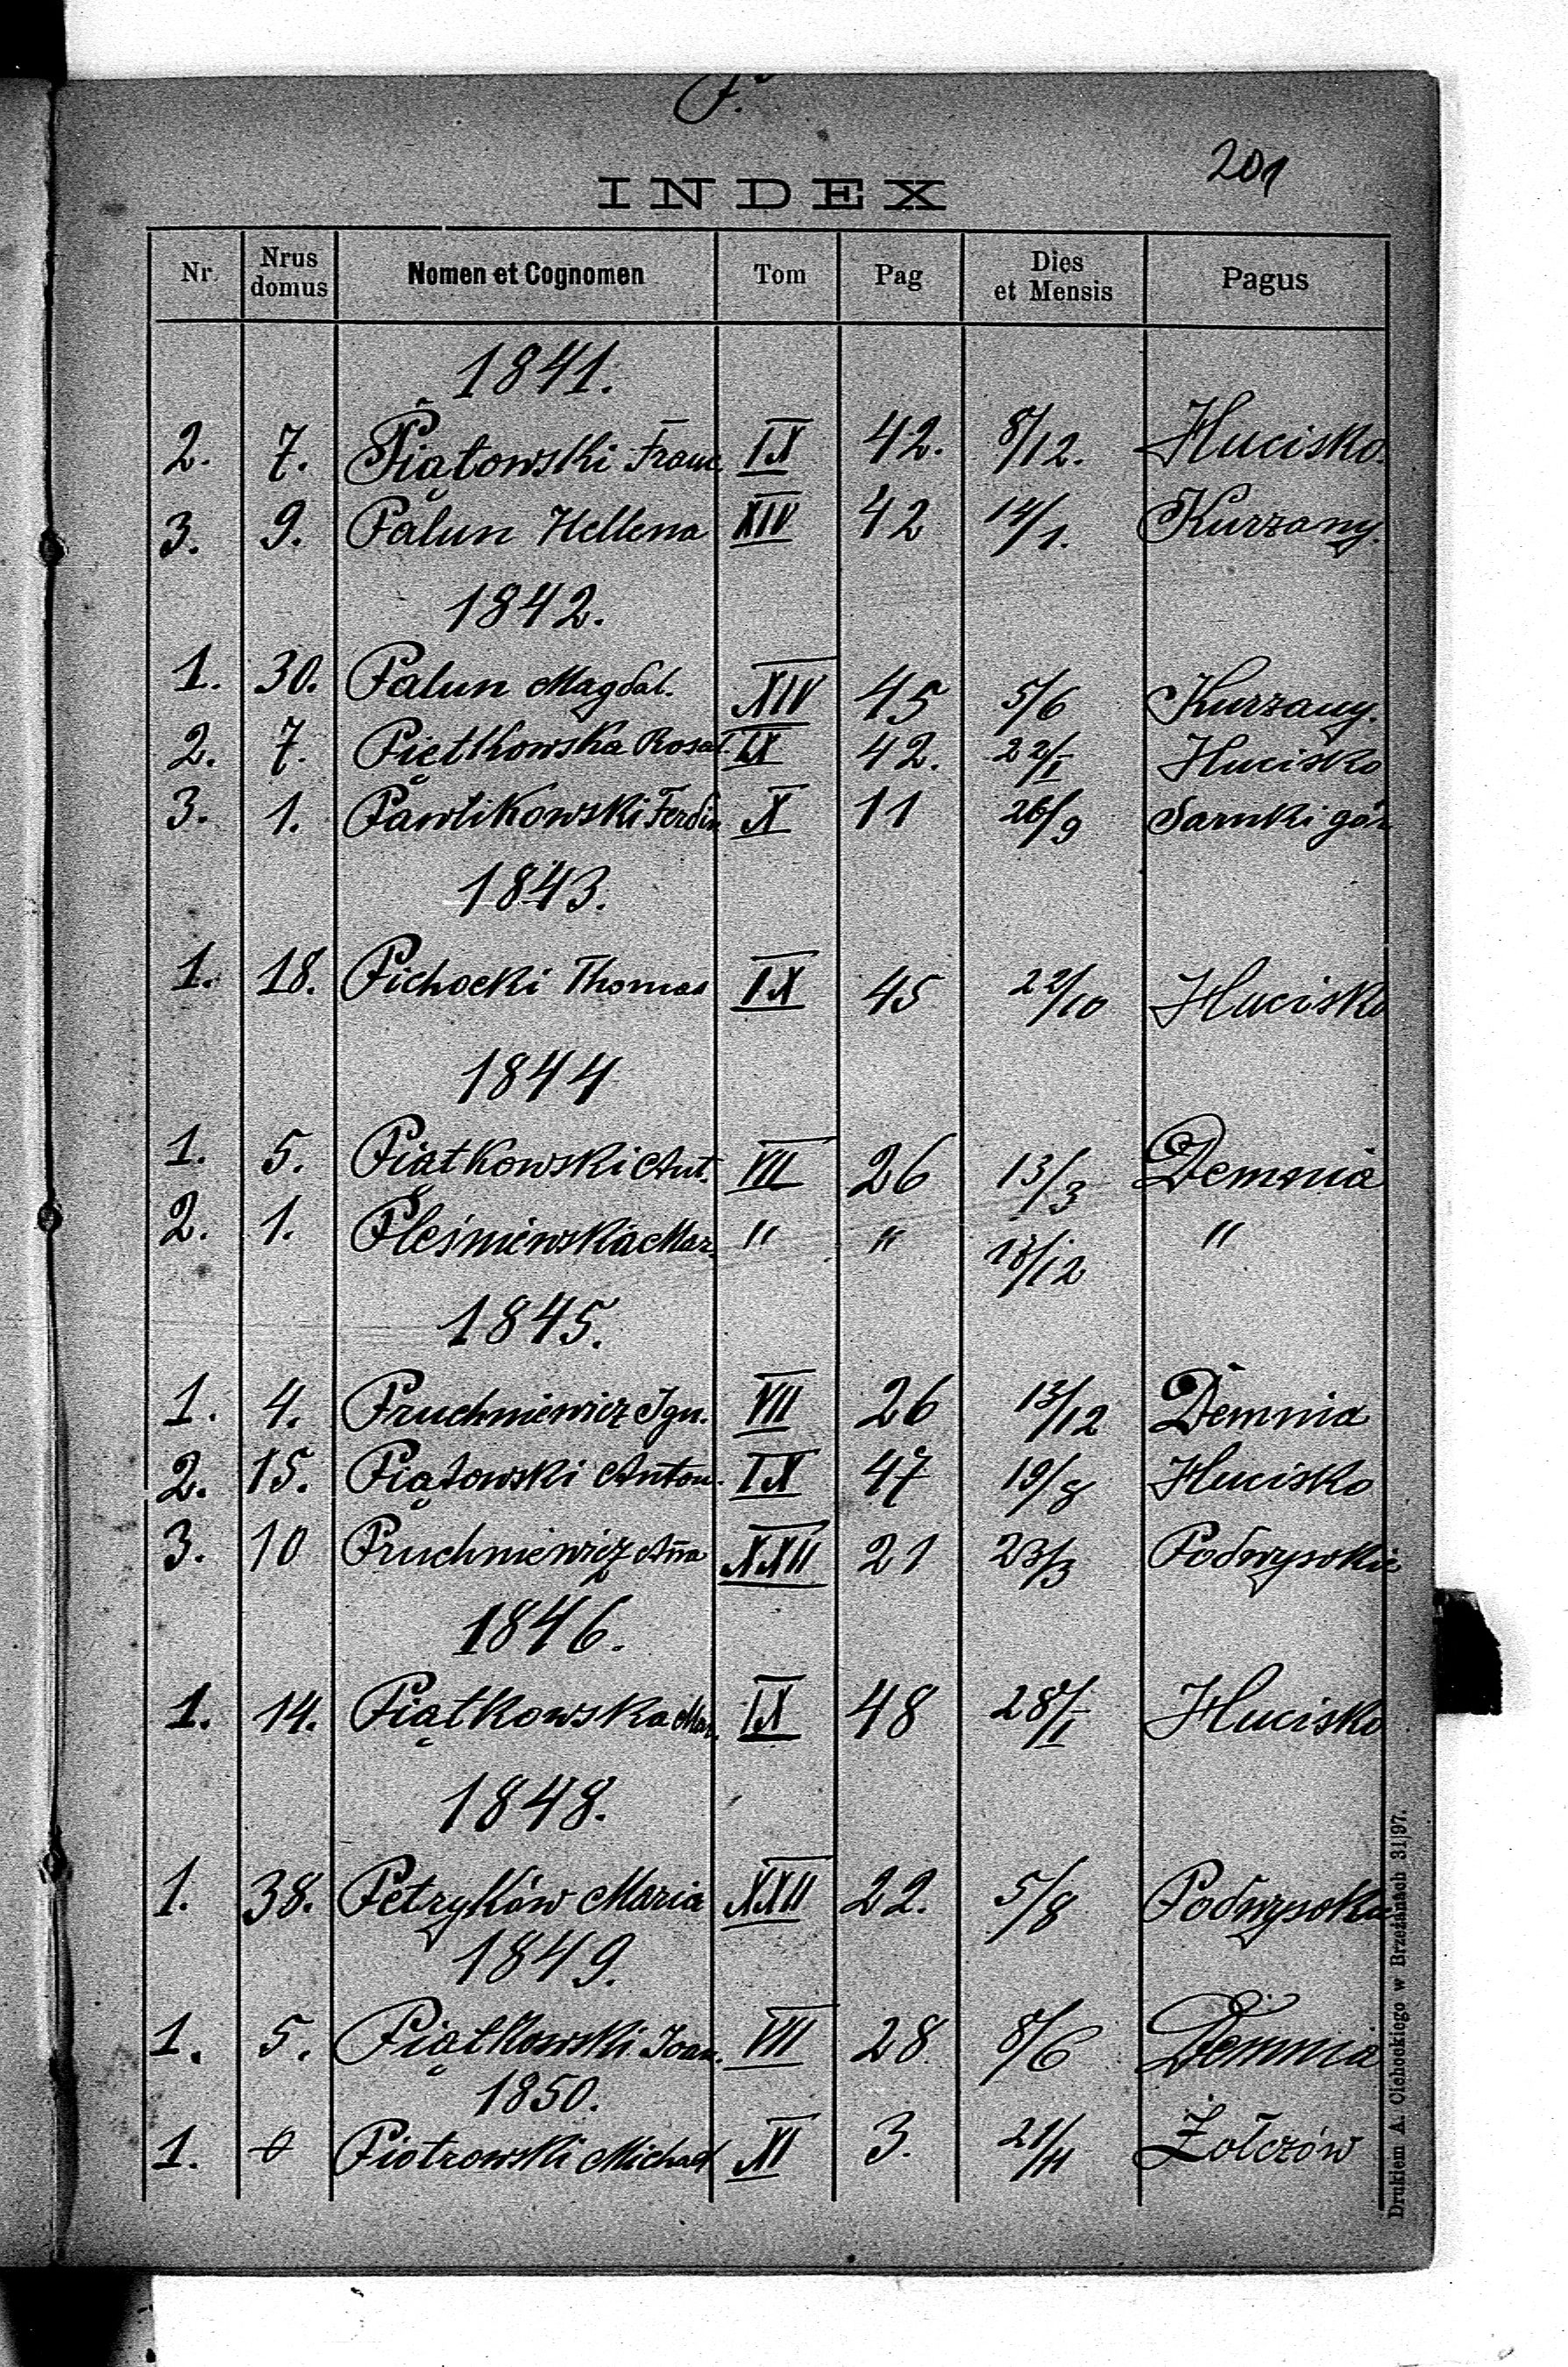 P.
201
INDEX
Nr. Nrus domus Nomen et Cognomen Tom Pag Dies et Mensis Pagus
1841.
2. 7. Piątowski Franc. IX 42. 8/12. Hucisko.
3. 9. Palun Hellena XIV 42 14/1. Kurzany.
1842.
1. 30. Palun Magdal. XIV 45 5/6 Kurzany.
2. 7. Piętkowska Rosal. IX 42. 22/I Hucisko
3. 1. Pawlikowski Ferdin X 11 26/9 Sarnki gór
1843.
1. 18. Pichocki Thomas IX 45 22/10 Hucisko
1844
1. 5. Piątkowski Ant. VII 26 13/3 Demnia
2. 1. Pleśniewska Mar. " " 18/12 "
1845.
1. 4. Pruchniewicz Ign. VII 26 13/12 Demnia
2. 15. Piątowski Anton. IX 47 19/8 Hucisko
3. 10 Pruchniewicz Ana XXII 21 23/3 Podwysokie
1846.
1. 14. Piątkowska Mar. IX 48 28/I Hucisko
1848.
1. 38. Petryków Maria XXII 22. 5/8 Podwysokie
1849.
1. 5. Piątkowski Joan. VII 28. 8/6 Demnia
1850.
1. Piotrowski Michael XI 3. 21/11 Żołczów
Drukiem A. Cichockiego w Brzeżanach 31|97.